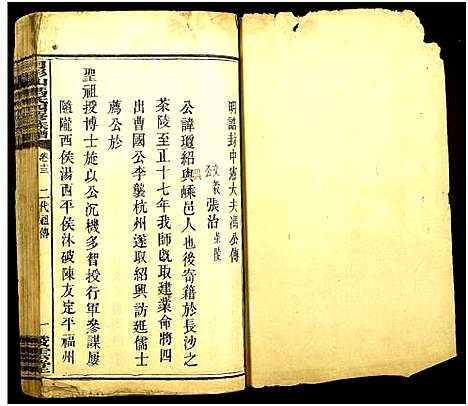 明誥封中憲大夫馮公傳
文毅公 張治 茶陵
公諱瓊紹興嵊邑人也後寄籍於長沙之
茶陵至正十七年我師既取建業命將四
出曹國公李襲杭州遂取紹興訪延儒士
薦公於
聖祖授博士旋以公沉機多智授行軍參謀屢
隨隴西侯湯西平侯沐破陳友定平福州
卷十三 二代祖傳 一